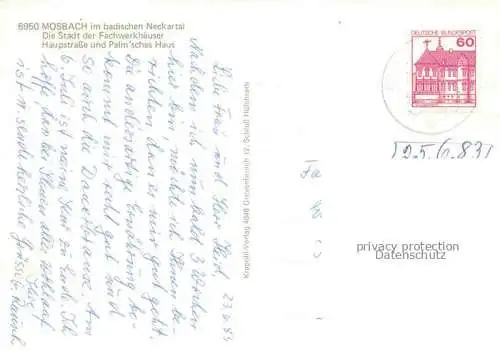 6950 MOSBACH im badischen Neckartal
Die Stadt der Fachwerkhäuser
Hauptstraße und Palm'sches Haus
DEUTSCHE BUNDESPOST
60
25.6.83
Fa
privacy protection
Datenschutz
Krapohl-Verlag 4048 Grevenbroich 12, Schloß Hülchrath
23.6.83
Liebe Frau und Herr
Nachdem ich nun bald 3 Wochen
hier bin, möchte ich Ihnen be-
richten, daß es mir gut geht.
Die andersartige Ernährung be-
kommt mir recht gut und
so auch die Dauerbrause. Am
6. Juli ist meine Kur zu Ende. Ich
hoffe, daß bei Ihnen alles wohlauf
ist u. sende herzliche Grüsse Ihre